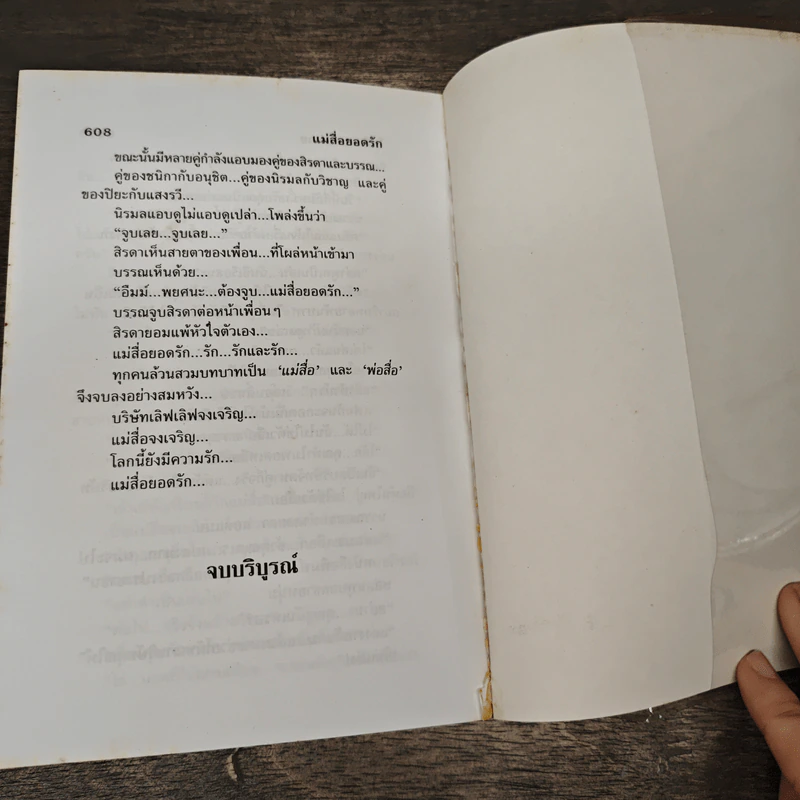 608
แม่สื่อยอดรัก
ขณะนั้นมีหลายคู่กำลังแอบมองคู่ของสิรดาและบรรณ...
คู่ของชนิกากับอนุชิต...คู่ของนิรมลกับวิชาญ และคู่
ของปิยะกับแสงรวี...
นิรมลแอบดูไม่แอบดูเปล่า...โพล่งขึ้นว่า
“จูบเลย...จูบเลย...”
สิรดาเห็นสายตาของเพื่อน...ที่โผล่หน้าเข้ามา
บรรณเห็นด้วย...
“อืมม์...พยศนะ...ต้องจูบ...แม่สื่อยอดรัก...”
บรรณจูบสิรดาต่อหน้าเพื่อนๆ
สิรดายอมแพ้หัวใจตัวเอง...
แม่สื่อยอดรัก...รัก...รักและรัก...
ทุกคนล้วนสวมบทบาทเป็น ‘แม่สื่อ’ และ ‘พ่อสื่อ’
จึงจบลงอย่างสมหวัง...
บริษัทเลิฟเลิฟจงเจริญ...
แม่สื่อจงเจริญ...
โลกนี้ยังมีความรัก...
แม่สื่อยอดรัก...
จบบริบูรณ์